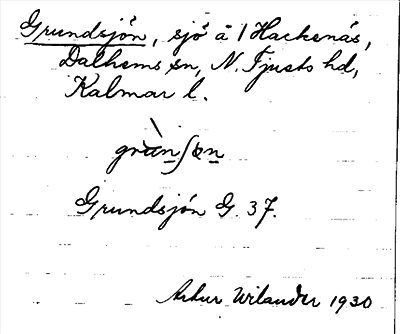 Grundsjön, sjö å 1 Hackenäs,
Dalhems sn, N. Tjusts hd,
Kalmar l.
Grundsjön G. 37.
Artur Wilander 1930